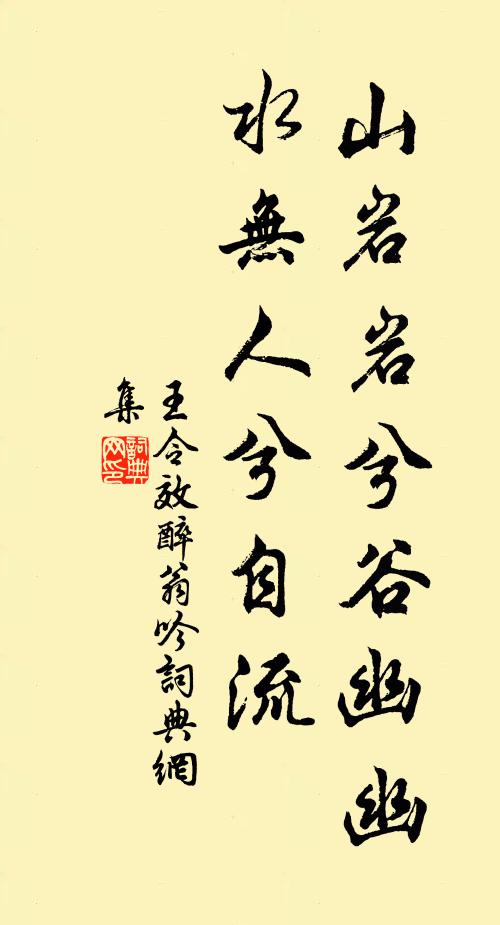 山岩岩兮谷幽幽
水無人兮自流
王令效醉翁吟詞典網
集
詞典網印